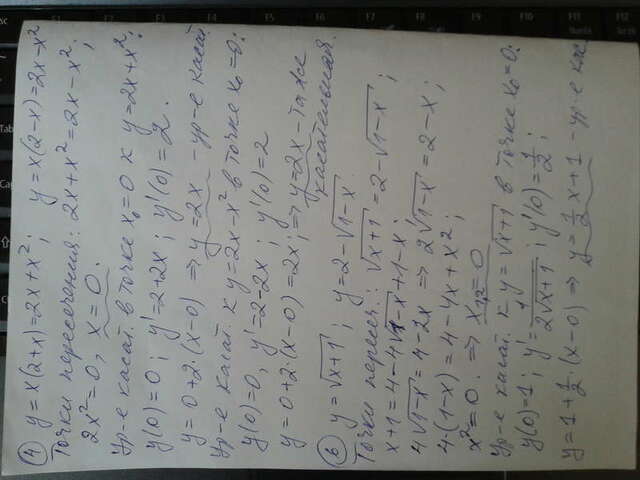 ④ y=x(2+x)=2x+x²; y=x(2-x)=2x-x²
Точки пересечения: 2x+x²=2x-x²;
2x²=0, x=0.
Ур-е касат. в точке x₀=0 к y=2x+x²:
y(0)=0; y'=2+2x; y'(0)=2.
y=0+2·(x-0) ⇒ y=2x - ур-е касат
Ур-е касат. к y=2x-x² в точке x₀=0:
y(0)=0, y'=2-2x; y'(0)=2
y=0+2·(x-0)=2x; ⇒ y=2x - та же
касательная.
⑥ y=√(x+1); y=2-√(1-x)
Точки пересеч.: √(x+1)=2-√(1-x);
x+1=4-4√(1-x)+1-x;
4√(1-x)=4-2x ⇒ 2√(1-x)=2-x;
4·(1-x)=4-4x+x²;
x²=0 ⇒ x₁,₂=0
Ур-е касат. к y=√(x+1) в точке x₀=0:
y(0)=1; y'=1/(2√(x+1)); y'(0)=1/2;
y=1+1/2·(x-0) ⇒ y=1/2x+1 - ур-е кас
F6
F7
F8
F9
F10
F11
F12
Tab